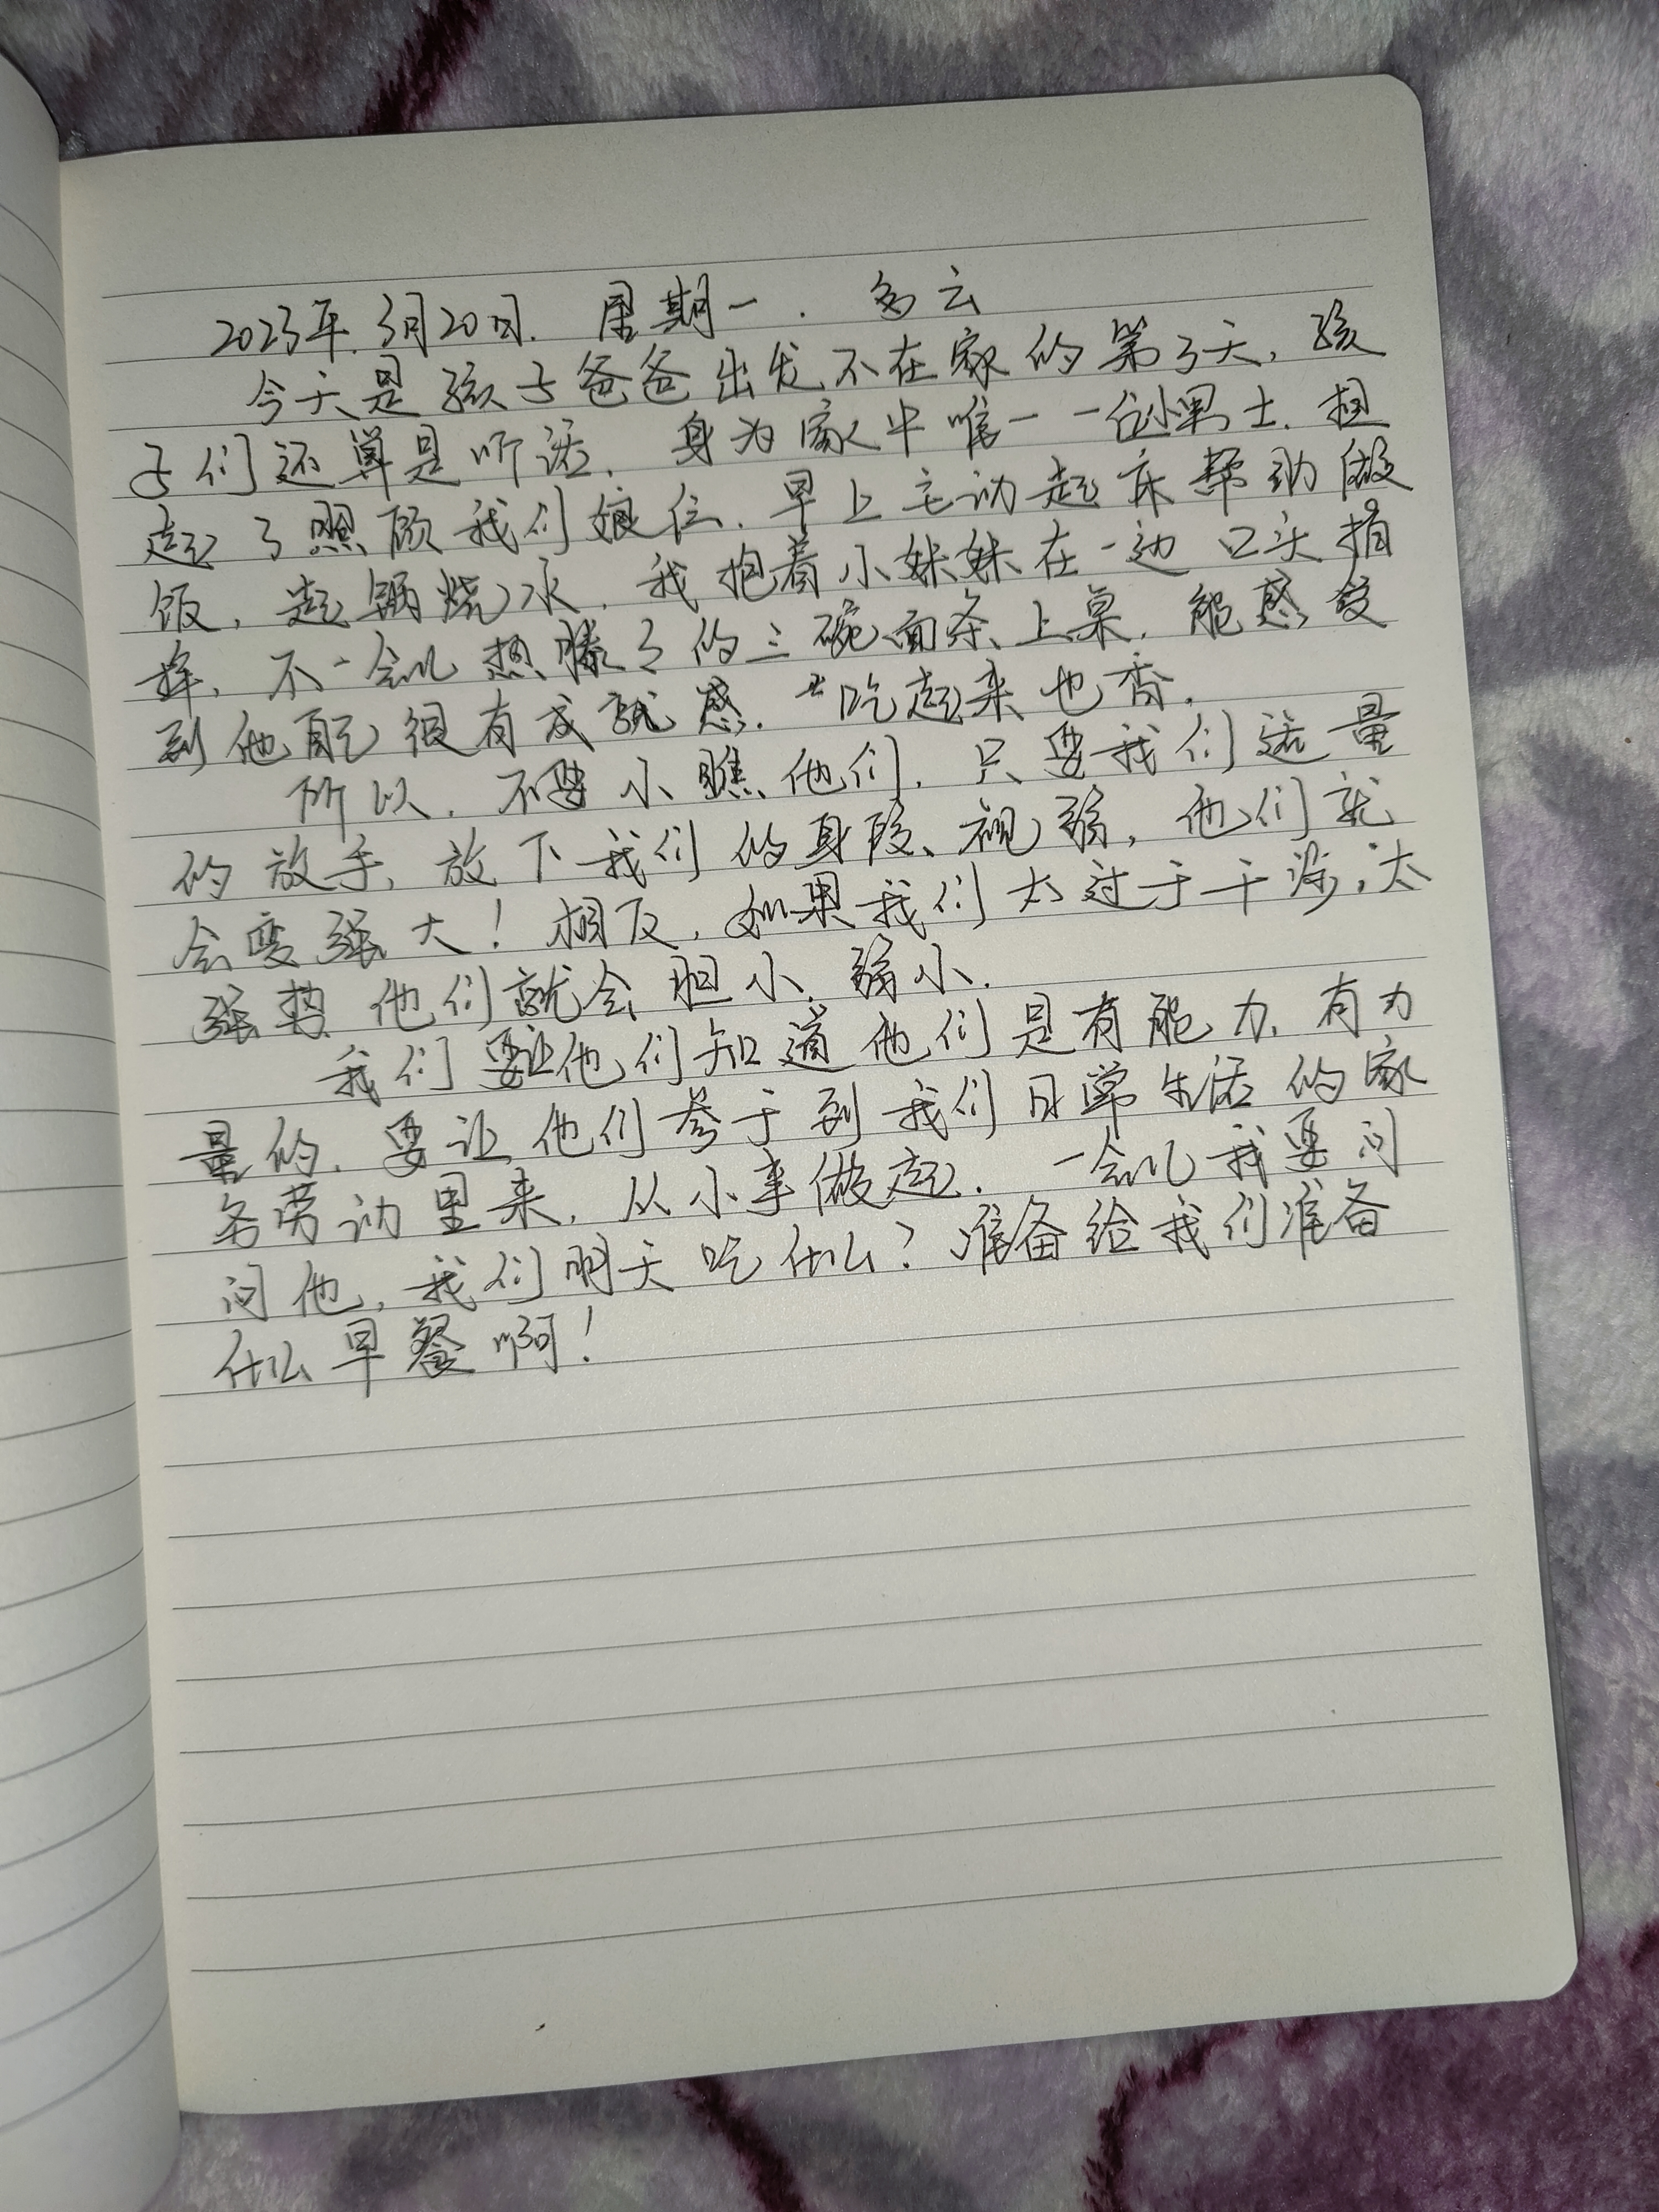 2023年.3月20日. 星期一. 多云
今天是孩子爸爸出发不在家的第3天,孩
子们还算是听话.身为家中唯一一位小男士.担
起了照顾我们娘仨.早上主动起床帮助做
饭,起锅烧水,我抱着小妹妹在一边口头指
挥,不一会儿热腾了的三碗面条上桌.能感受
到他自己很有成就感.吃起来也香.
所以,不要小瞧他们,只要我们适量
的放手,放下我们的身段、视弱,他们就
会变强大!相反,如果我们太过于干涉,太
强势他们就会胆小.弱小.
我们要让他们知道他们是有能力,有力
量的.要让他们参于到我们日常生活的家
务劳动里来,从小事做起.一会儿我要问
问他,我们明天吃什么?准备给我们准备
什么早餐啊!